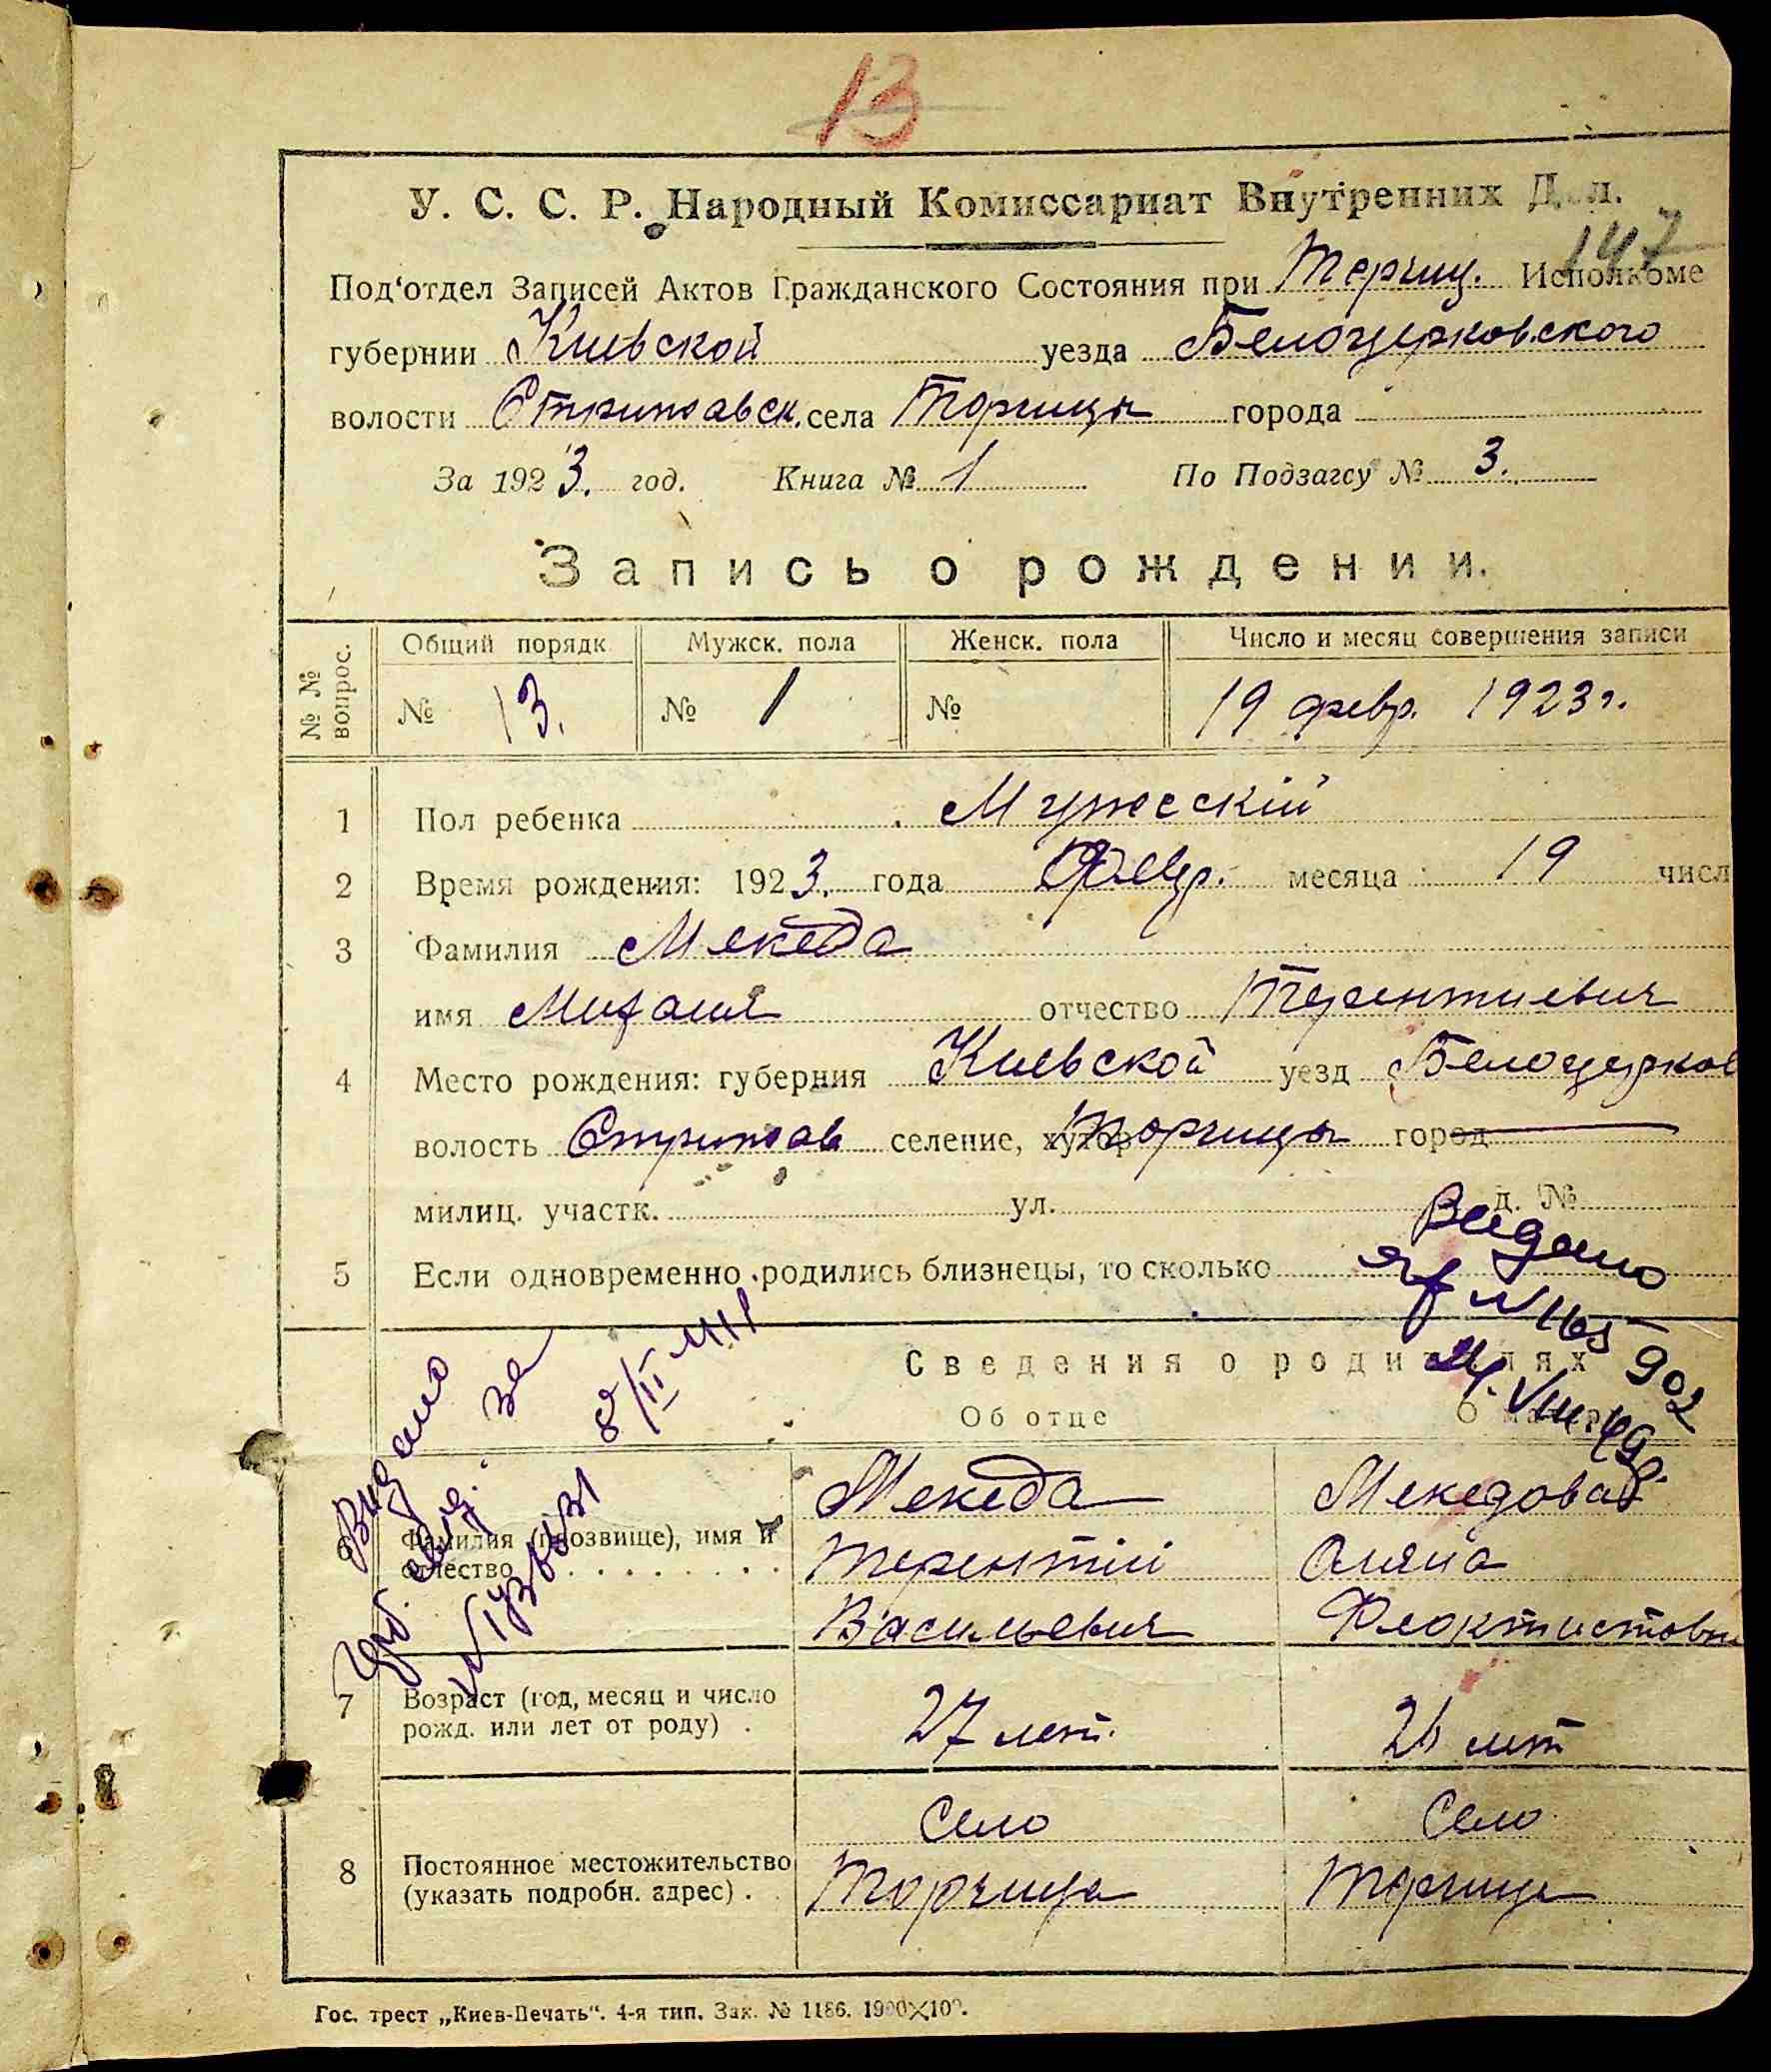 13
У. С. С. Р. Народный Комиссариат Внутренних Дел.
147
Под'отдел Записей Актов Гражданского Состояния при Торчиц. Исполкоме
губернии Киевской уезда Белоцерковского
волости Стрижавск. села Торчицы города
За 1923. год. Книга № 1 По Подзагсу № 3.
Запись о рождении.
№ № вопрос.
Общий порядк Мужск. пола Женск. пола Число и месяц совершения записи
№ 13. № 1 № 19 февр. 1923 г.
1 Пол ребенка Мужескій
2 Время рождения: 1923. года Февр. месяца 19 числ
3 Фамилия Мекеда
имя Михаил отчество Терентиевич
4 Место рождения: губерния Киевской уезд Белоцерков
волость Стрижав селение, хутор Торчицы город
милиц. участк. ул. д. №
5 Если одновременно родились близнецы, то сколько
Видано
902
Сведения о родителях
Об отце О матери
Видано
за
6 Фамилия (прозвище), имя и отчество
Мекеда Мекедовая
Терентій Оляна
Васильевич Феоктистовн
7 Возраст (год, месяц и число рожд. или лет от роду) .
27 лет. 21 лет
Село Село
8 Постоянное местожительство (указать подробн. адрес) .
Торчица Торчица
Гос. трест „Киев-Печать". 4-я тип. Зак. № 1186. 1900×100.